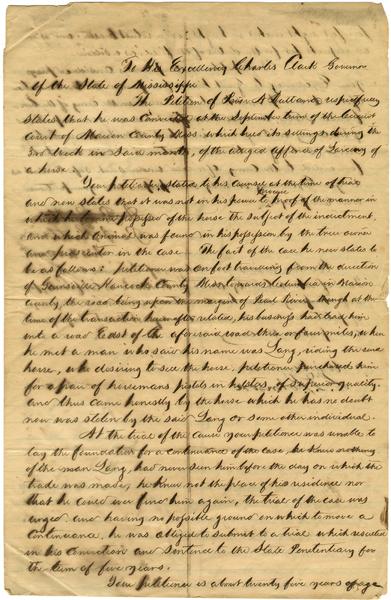 To His Excellency Charles Clark Governor
of the State of Mississippi
The Petition of respectfully
states that he was Convicted at the September term of the Circuit
Court of Marion County Miss. which held its sittings during the
3rd week in said month, of the alleged offence of Larceny of
a horse.
Your petitioner stated to his Counsel at the time of trial
and now states that it was not in his power to procure proof of the manner in
which he became possessed of the horse the subject of the indictment,
and which animal was found in his possession by the true owner
and prosecutor in the case. The fact of the case he now states to
be as follows: petitioner was on foot travelling from the direction
of Gainsville Hancock County Miss towards Columbia in Marion
County, the road being upon the margin of Pearl River, though at the
time of the transaction hereafter related, his business had led him
into a road East of the aforesaid road three or four miles, when
he met a man who said his name was Lang, riding the said
horse, who desiring to sell the horse, petitioner purchased him
for a pair of horsemans pistols in holsters, of superior quality,
and thus came honestly by the horse which he has no doubt
now was stolen by the said Lang or some other individual.
At the trial of the cause your petitioner was unable to
lay the foundation for a continuance of the case, he knew nothing
of the man Lang, had never seen him before the day on which the
trade was made, he knew not the place of his residence nor
that he could ever find him again, the trial of the case was
urged and having no possible ground on which to move a
Continuance, he was obliged to submit to a trial which resulted
in his conviction and sentence to the State Penitentiary for
the term of five years.
Your petitioner is about twenty five years of age